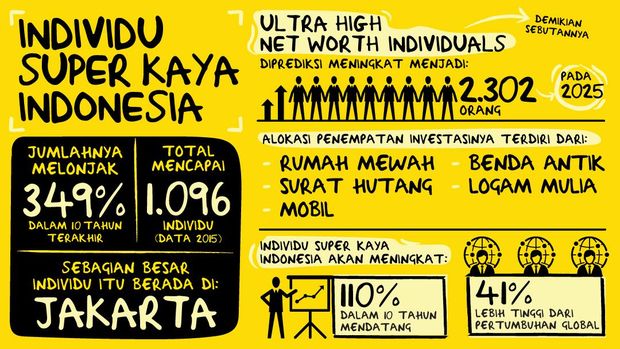 INDIVIDU
SUPER KAYA
INDONESIA
JUMLAHNYA
MELONJAK
349%
DALAM 10 TAHUN
TERAKHIR
TOTAL
MENCAPAI
1.096
INDIVIDU
(DATA 2015)
SEBAGIAN BESAR
INDIVIDU ITU BERADA DI:
JAKARTA
ULTRA HIGH
NET WORTH INDIVIDUALS
DEMIKIAN
SEBUTANNYA
DIPREDIKSI MENINGKAT MENJADI:
2.302
ORANG
PADA
2025
ALOKASI PENEMPATAN INVESTASINYA TERDIRI DARI:
- RUMAH MEWAH
- SURAT HUTANG
- MOBIL
- BENDA ANTIK
- LOGAM MULIA
INDIVIDU SUPER KAYA
INDONESIA AKAN MENINGKAT:
110%
DALAM 10 TAHUN
MENDATANG
41%
LEBIH TINGGI DARI
PERTUMBUHAN GLOBAL